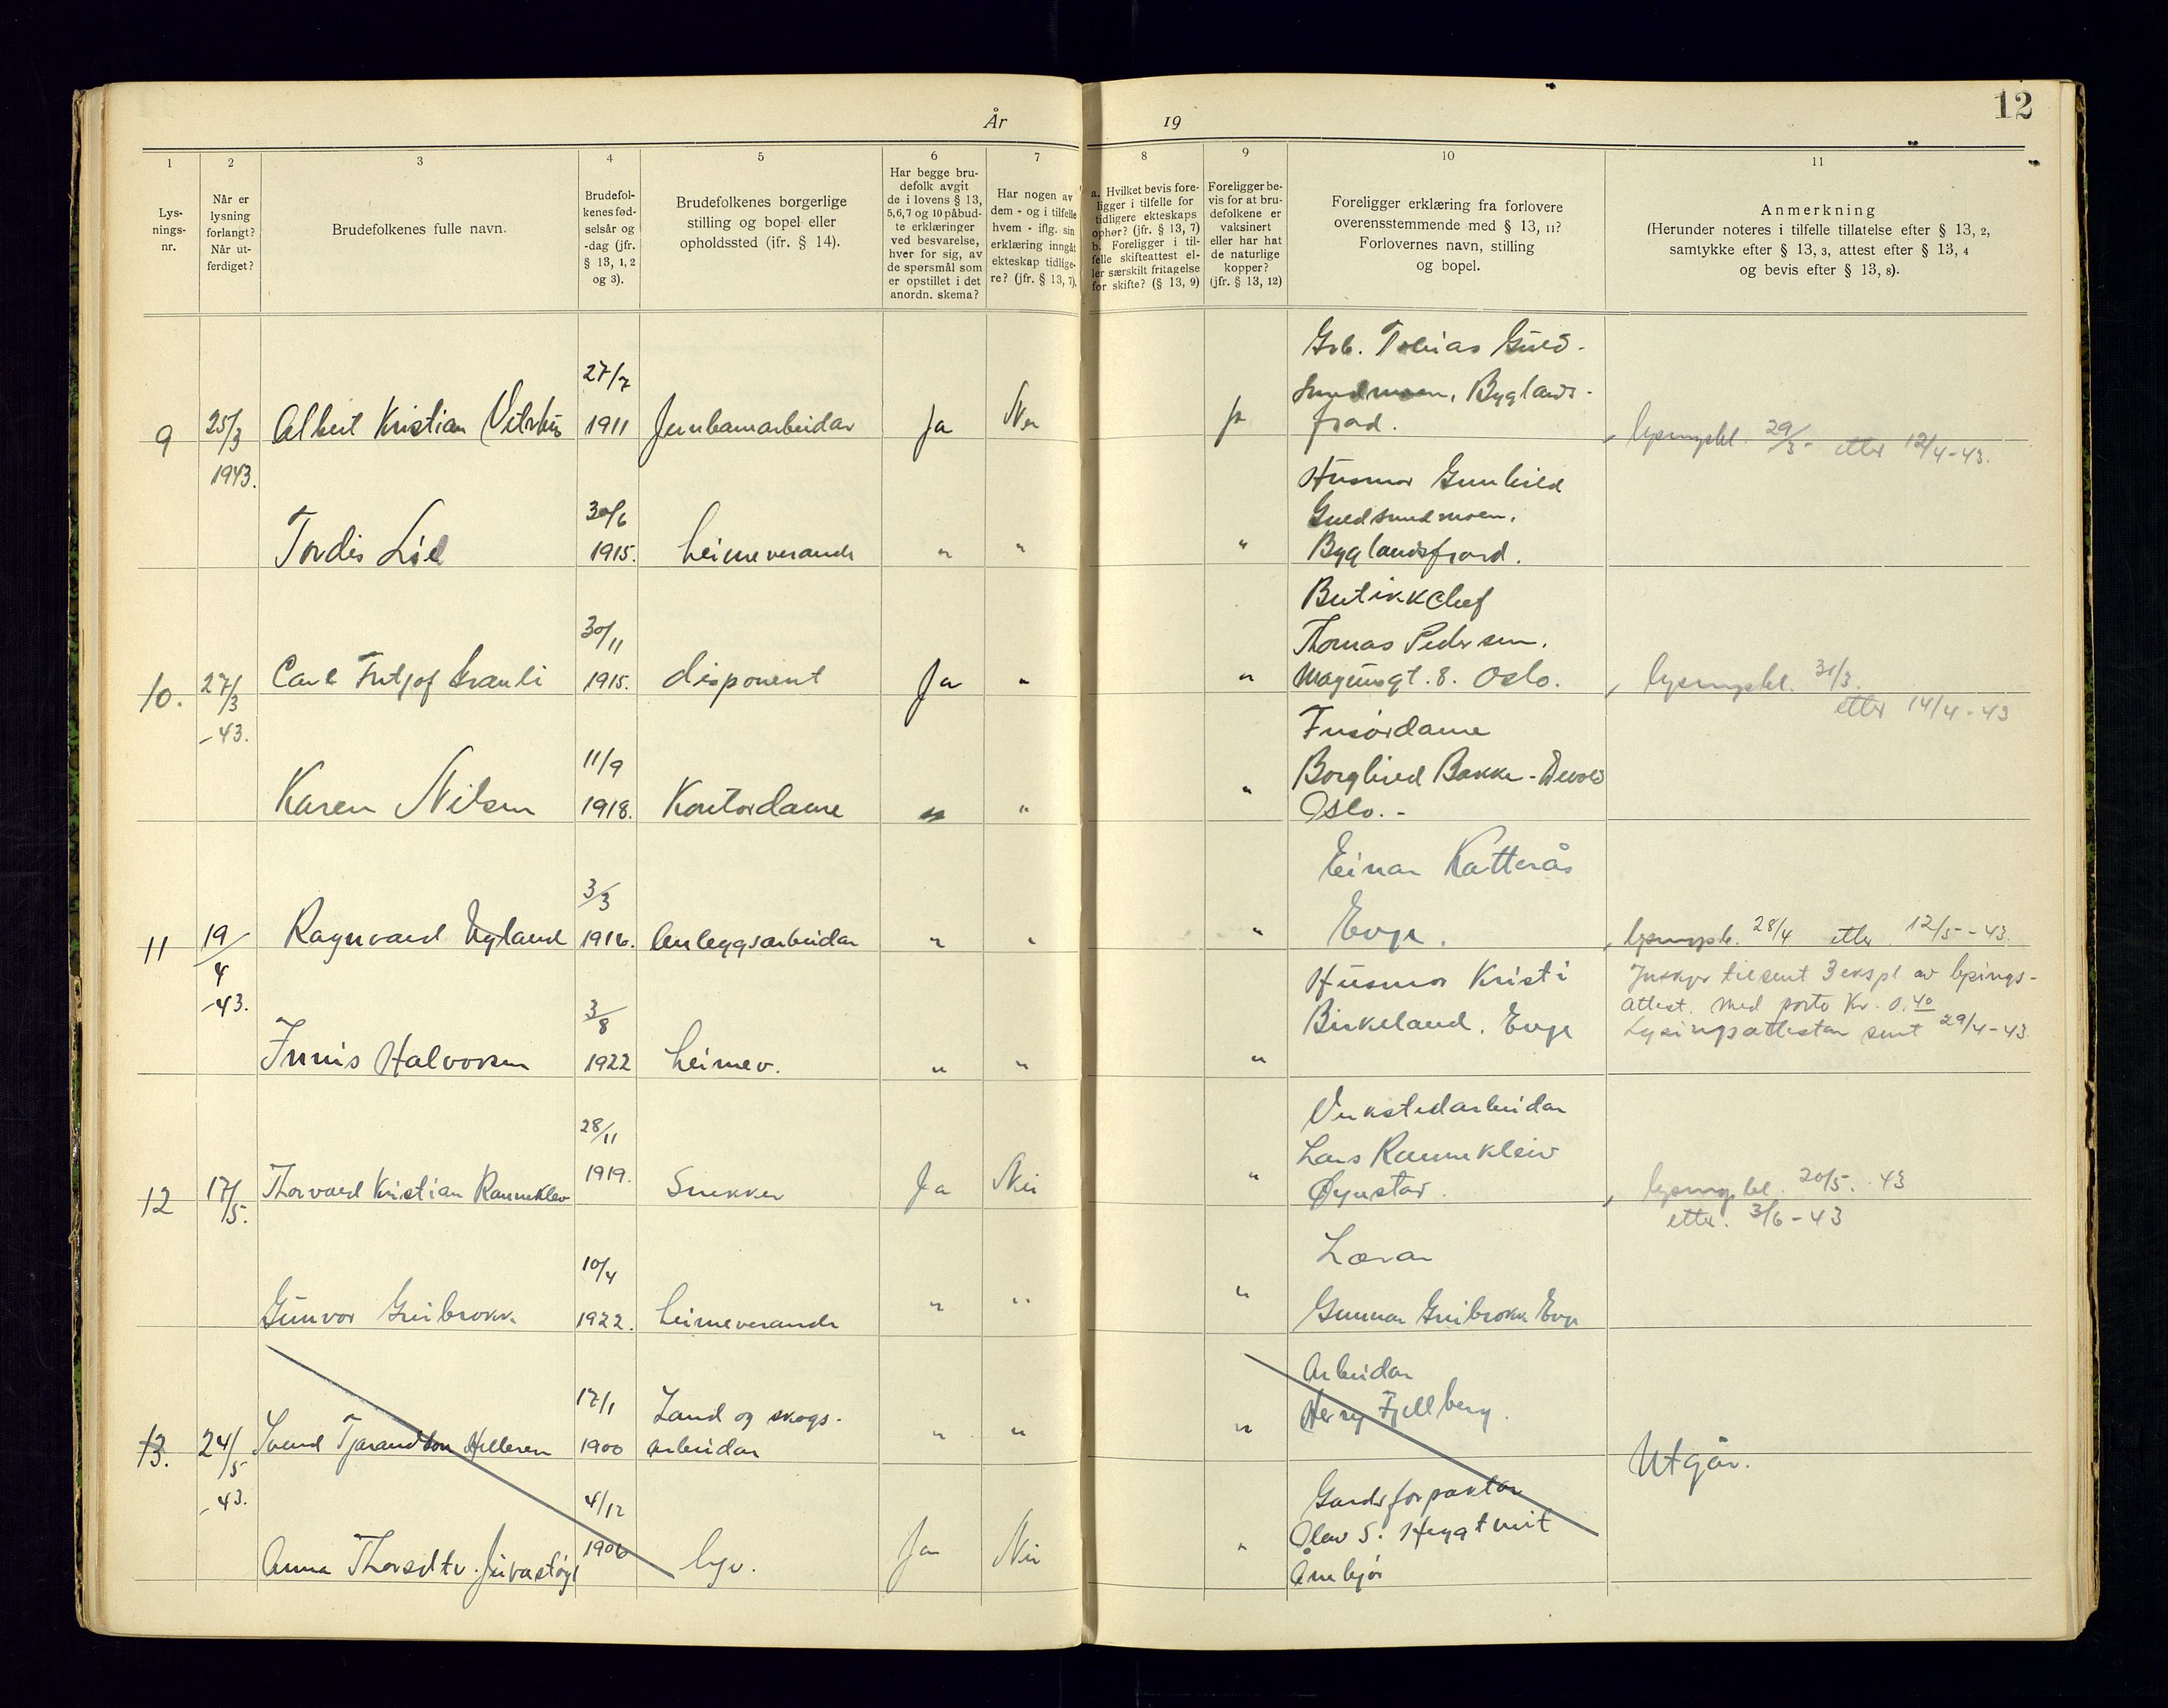 12
År 19
1 2 3 4 5 6 7 8 9 10 11
Lys-
nings-
nr.
Når er
lysning
forlangt?
Når ut-
ferdiget?
Brudefolkenes fulle navn.
Brudefol-
kenes fød-
selsår og
-dag (jfr.
§ 13, 1, 2
og 3).
Brudefolkenes borgerlige
stilling og bopel eller
opholdssted (jfr. § 14).
Har begge bru-
defolk avgit
de i lovens § 13,
5,6,7 og 10 påbud-
te erklæringer
ved besvarelse,
hver for sig, av
de spørsmål som
er opstillet i det
anordn. skema?
Har nogen av
dem - og i tilfelle
hvem - iflg. sin
erklæring inngått
ekteskap tidlige-
re? (jfr. § 13, 7).
a. Hvilket bevis fore-
ligger i tilfelle for
tidligere ekteskaps
ophør? (jfr. § 13, 7)
b. Foreligger i til-
felle skifteattest el-
ler særskilt fritagelse
for skifte? (§ 13, 9)
Foreligger be-
vis for at bru-
defolkene er
vaksinert
eller har hat
de naturlige
kopper?
(jfr. § 13, 12)
Foreligger erklæring fra forlovere
overensstemmende med § 13, 11?
Forlovernes navn, stilling
og bopel.
Anmerkning
(Herunder noteres i tilfelle tillatelse efter § 13, 2,
samtykke efter § 13, 3, attest efter § 13, 4
og bevis efter § 13, 8).
9 25/3 1943. Albert Kristian 27/7 1911 Jernbanearbeidar Ja Nei Ja
Grb. Tobias Guld-
smedmoen, Byglands-
fjord.
lysingsbl. 29/3- etter 12/4-43.
Tordis Lie 30/6 1915. heimeverande " " "
Husmor Gunhild
Guldsmedmoen.
Byglandsfjord.
10. 27/3 -43. Carl Fritjof 30/11 1915. disponent Ja " "
Butikkchef
Thomas Pedersen.
Magnusgt. 8. Oslo.
lysingsbl. 31/3.
etter 14/4-43
Karen Nilsen 11/9 1918. Kontordame " " "
Frisørdame
Borghild Bakke-
Oslo.-
11 19/4 -43. Ragnvald Uglland 3/3 1916. Anleggsarbeidar " " "
Einar Katterås
Evje.
lysingsbl. 28/4 etter 12/5-43.
tilsent 3 ekspl. av lysings-
attest. med porto Kr. 0.40
Lysingsattesten sent 29/4-43.
Halvorsen 3/8 1922 heimev. " " "
Husmor Kristi
Birkeland. Evje
12 17/5. Thorvald Kristian Rannekleiv 28/11 1919. Snekker Ja Nei "
Verkstedarbeidar
Lars Rannekleiv
Øynstad.
lysingsbl. 20/5. 43
etter. 3/6-43
Gunvor Greibrokk 10/4 1922. heimeverande " " "
Lærar
Gunnar Greibrokk Evje
13. 24/5 -43. Svend Tjarandson Helleren 17/1 1900 Land og skogs-
arbeidar " " "
Arbeidar
Henry Fjellberg.
Utgår.
Anna Thorsdtr. 4/12 1906 Ja Nei "
Gardsforpaktar
Olav S. Heggtveit
Ånebjør